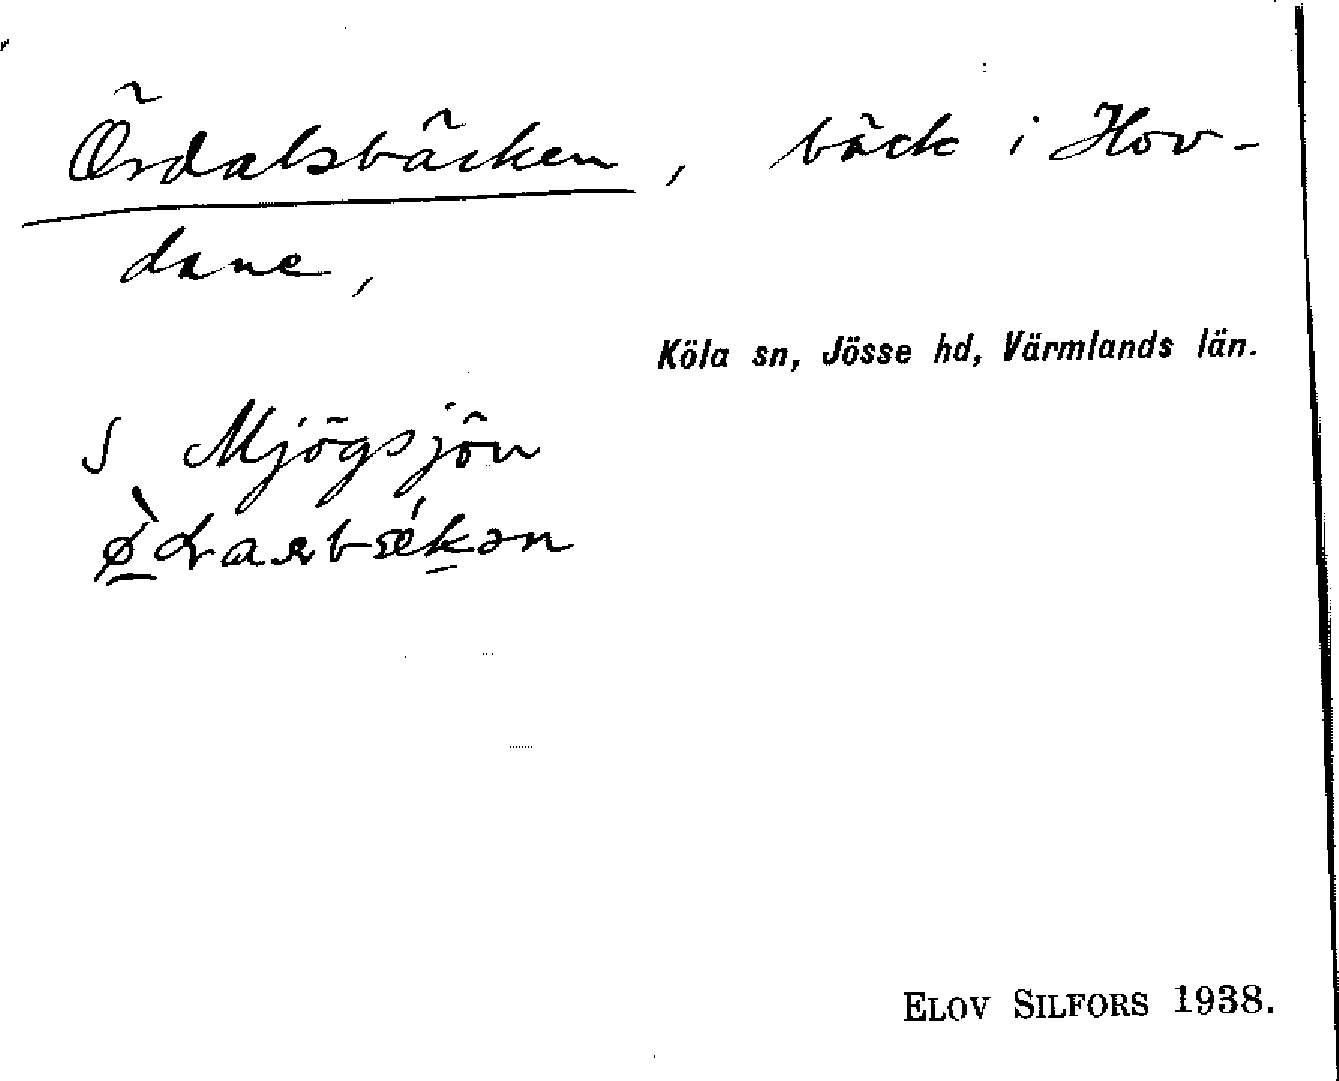 Ördalsbäcken, bäck i Hov-
dane,
Köla sn, Jösse hd, Värmlands län.
S Mjögsjön
ELOV SILFORS 1938.